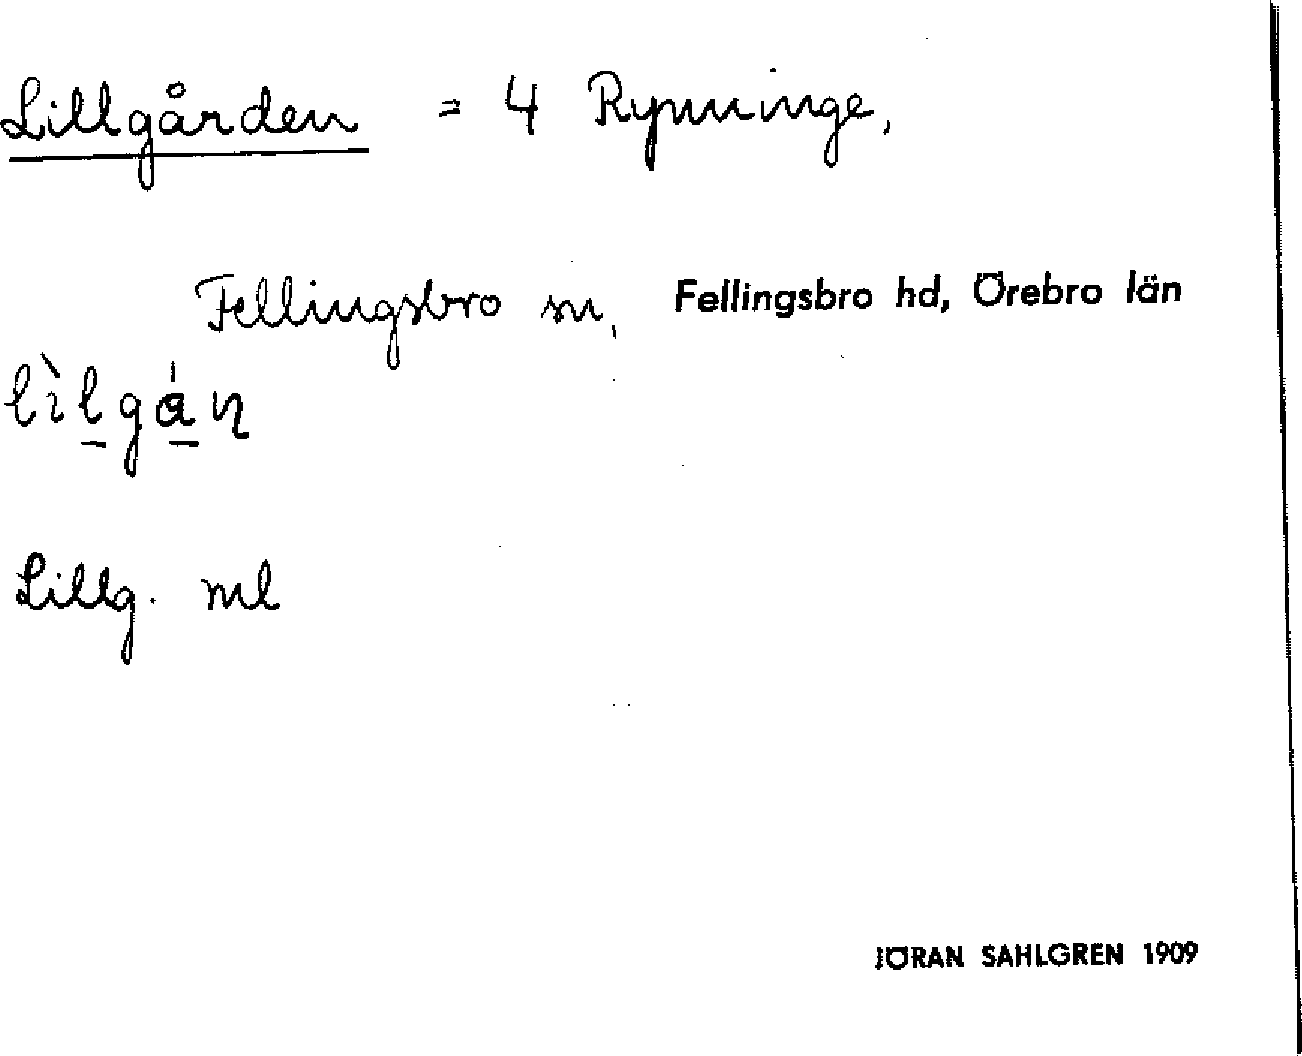 Lillgården = 4 Rynninge,
Fellingsbro sn, Fellingsbro hd, Örebro län
lìlgán
Lillg. ml
JÖRAN SAHLGREN 1909